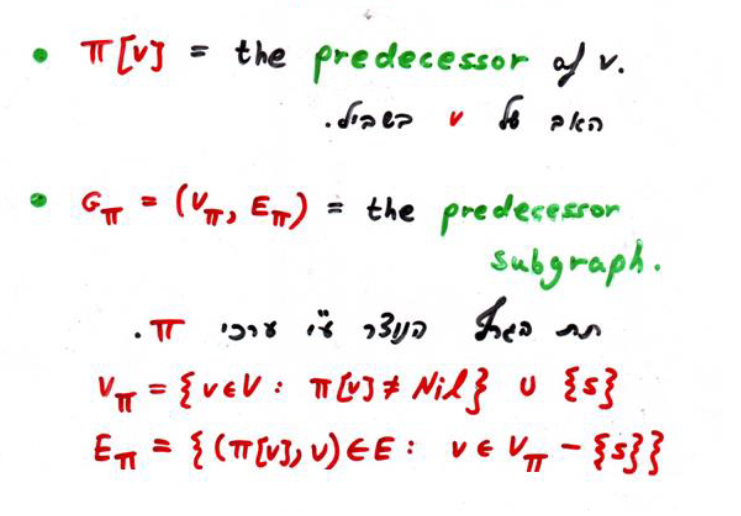 • π[v] = the predecessor of v.
האב של v בשביל.
• G_π = (V_π, E_π) = the predecessor
subgraph.
תת הגרף הנוצר ע"י ערכי π.
V_π = {v∈V : π[v] ≠ Nil} ∪ {s}
E_π = {(π[v], v) ∈ E : v ∈ V_π - {s}}